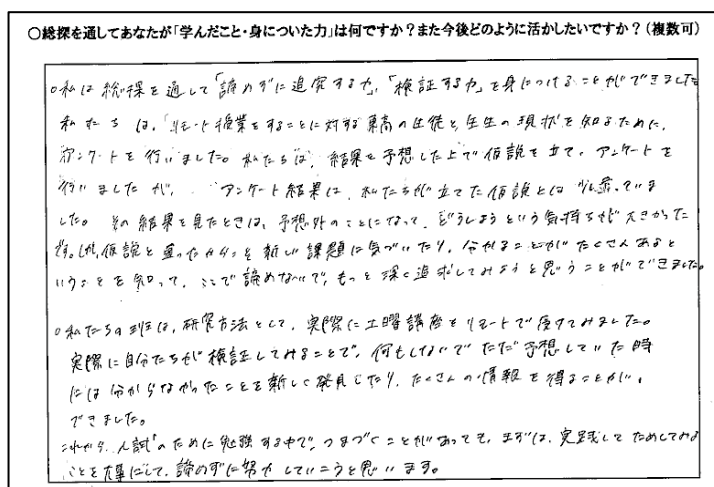 ○総探を通してあなたが「学んだこと・身についた力」は何ですか？また今後どのように活かしたいですか？（複数可）
○私は総探を通して「諦めずに追究する力」、「検証する力」を身につけることができました
私たちは、「リモート授業をすることに対する東高の生徒と先生の現状を知るために、
アンケートを行いました。私たちは、結果を予想した上で仮説を立て、アンケートを
行いましたが、アンケート結果は、私たちが立てた仮説とは違っていま
した。その結果を見たときは、予想外のことになって、どうしようという気持ちが大きかった
です。しかし、仮説と違ったからこそ新しい課題に気づいたり、分かることがたくさんあると
いうことを知って、ここで諦めないで、もっと深く追求してみようと思うことができました。
○私たちの班は、研究方法として、実際に土曜講座をリモートで受けてみました。
実際に自分たちが検証してみることで、何もしないでただ予想していた時
には分からなかったことを新しく発見したり、たくさんの情報を得ることが、
できました。
これから、入試のために勉強する中で、つまづくことがあっても、まずは、実践してためしてみる
ことを大事にして、諦めずに努力していこうと思います。